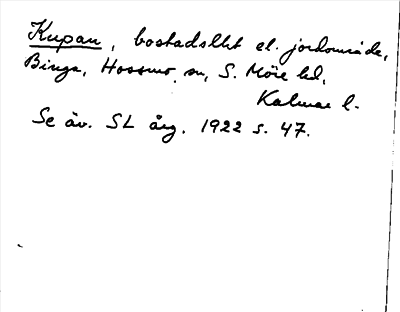 Kupan, bostadslht el. jordområde,
Binga, Hossmo sn, S. Möre hd,
Kalmar l.
Se äv. SL årg. 1922 s. 47.